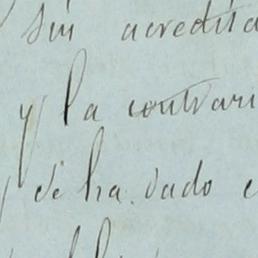 sin acredita
y la contrari
y se ha dado e